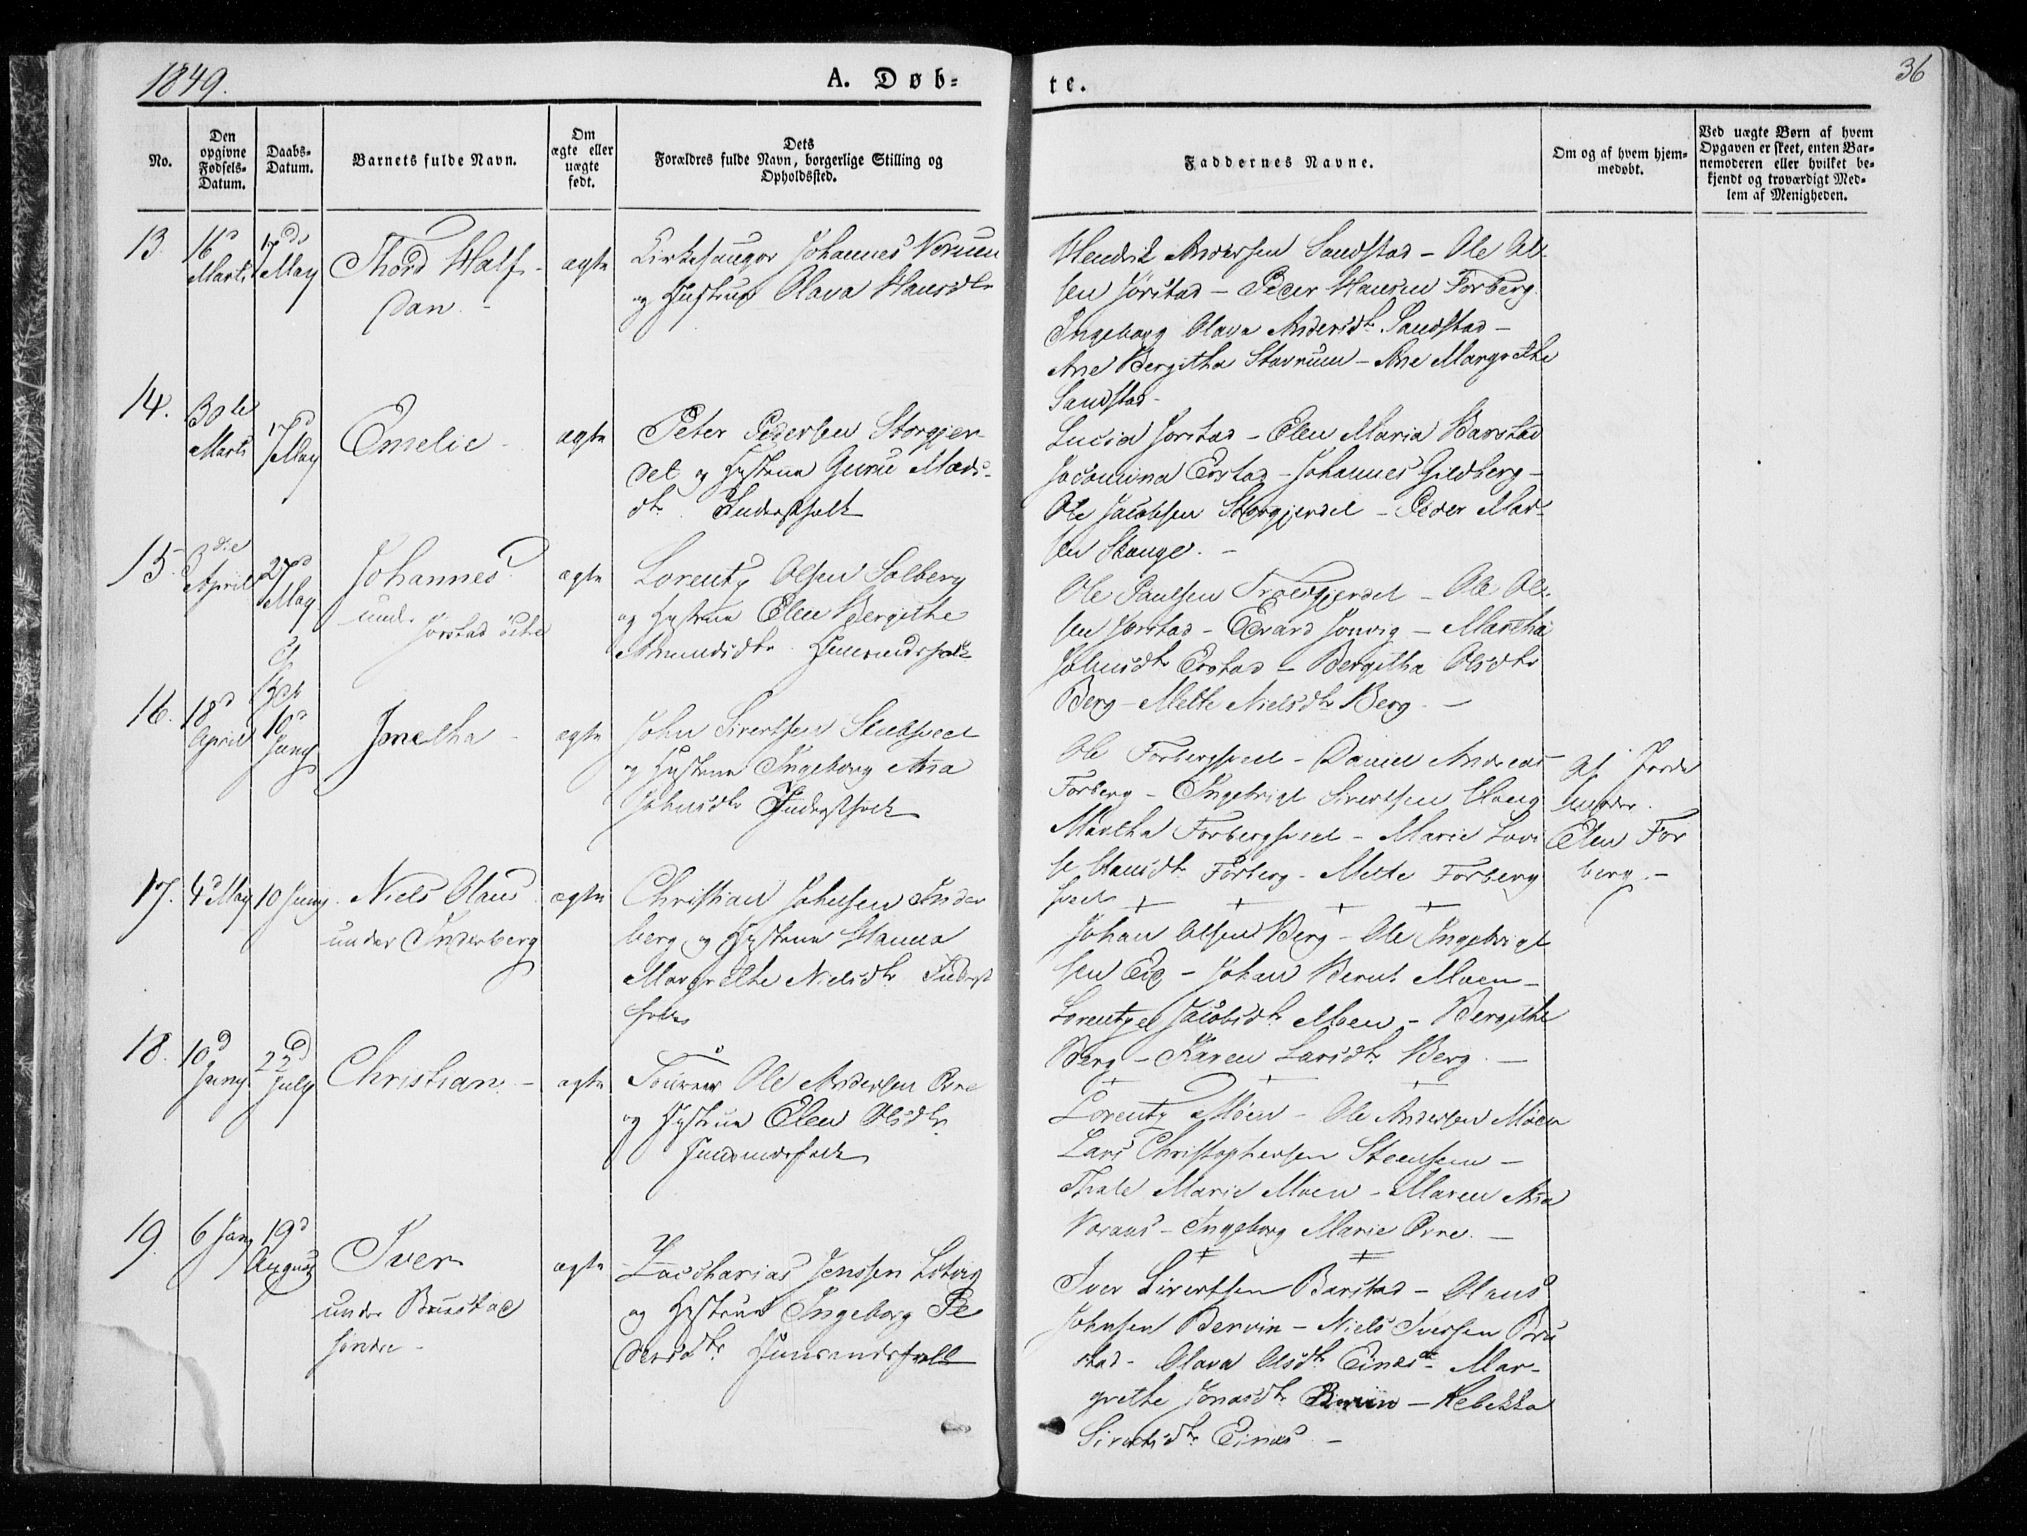 1849.
A. Døb-
te.
36
No.
Den opgivne Fødsels-Datum.
Daabs-Datum.
Barnets fulde Navn.
Om ægte eller uægte født.
Dets Forældres fulde Navn, borgerlige Stilling og Opholdssted.
Faddernes Navne.
Om og af hvem hjem-medøbt.
Ved uægte Børn af hvem Opgaven er skeet, enten Bar-nemoderen eller hvilket be-kjendt og troværdigt Med-lem af Menigheden.
13. 16d Marts 17d May Thord Half-
dan.
ægte
Kirkesanger Johannes
og Hustrue Olava Hansdtr
Hendrik Andersen Sandstad - Ole Ol-
sen Jørstad - Peder Hansen Forberg
Ingeborg Olava Andersdtr Sandstad -
Ane Bergitha Stavrum - Ane Margrethe
Sandstad -
14. 30te Marts 17d May Emelie -
ægte
Peter Pedersen Storgjer-
det og Hustrue Guru Mads-
dtr. Inderstfolk
Lucia Jørstad - Elen Maria Barstad
Jacomina Erstad - Johannes Gildberg -
Ole Jacobsen Storgjerdet - Peder Mad-
sen Stange. -
15. 3die April 27d May Johannes
und. Jørstad østre
ægte
Lorentz Olsen Solberg
og Hustrue Elen Bergithe
Amundsdtr. Huusmandsfolk
Ole Paulsen - Ole Ol-
sen Jørstad - Edvard Jonvig - Martha
Johnsdtr Erstad - Bergitha Olsdtr
Berg - Mette Nielsdtr Berg. -
16. 18d April 10d Juny Jonetha -
ægte
John Sivertsen
og Hustrue Ingeborg Ana
Johnsdtr Inderstfolk
Ole Forbergsveet - Daniel Andreas
Forberg - Ingebrigt Sivertsen Haug
Martha Forbergsveet - Marie Lovi
se Hansdtr Forberg - Mette Forberg
sveet
Af Jorde
moder
Elen For
berg. -
17. 4d May 10 Juny Niels Olaus
under Inderberg
ægte
Christian Johnsen Inder
berg og Hustrue Hanna
Margrethe Nielsdtr Inderst
folk
Johan Olsen Berg - Ole Ingebrigt
sen Eid - Johan Bernt Moen -
Lorentze Jacobsdtr Moen - Bergithe
Berg - Karen Larsdtr Berg. -
18. 10d Juny 22d July Christian. -
ægte
Ole Andersen Øvre
og Hustrue Elen Olsdtr
Huusmandsfolk
Lorentz Moen - Ole Andersen Moen
Lars Christophersen -
Thale Marie Moen - Maren Ana
- Ingeborg Marie Øvre. -
19. 6 Juny 19d August Iver
under Brustad
søndre -
ægte
Zacharias Jenssen
og Hustrue Ingeborg Pe
dersdtr Huusmandsfolk
Iver Sivertsen Barstad - Olaus
Johnsen Bervin - Niels Iversen Bru
stad - Olava Olsdtr Einæs - Mar-
grethe Jonasdtr - Rebekka
Sivertsdtr Einæs -